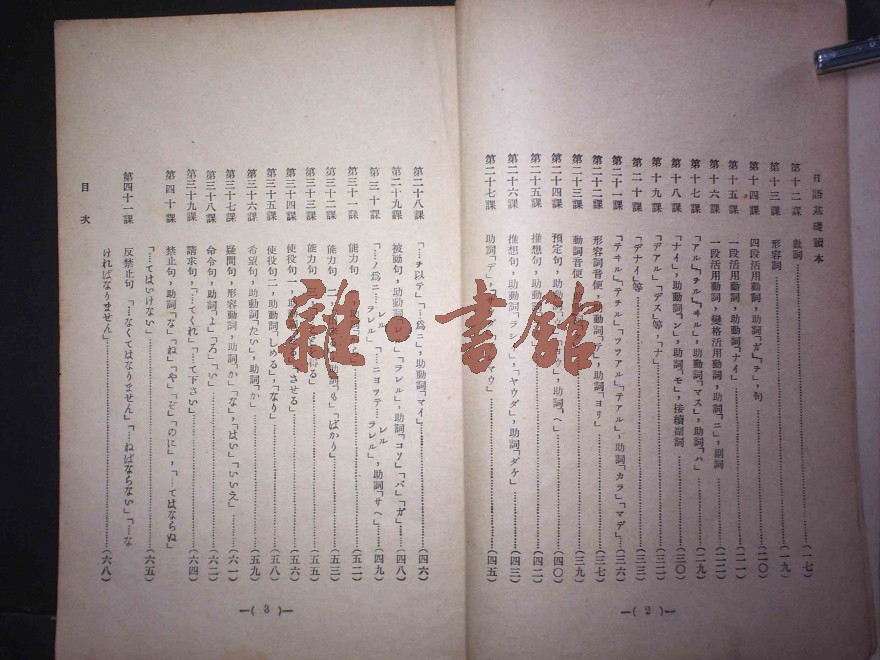 日語基礎讀本
第十二課 數詞……(一七)
第十三課 形容詞……(一九)
第十四課 四段活用動詞，助詞「ガ」「ヲ」，句……(二〇)
第十五課 一段活用動詞，助動詞「ナイ」……(二一)
第十六課 一段活用動詞，變格活用動詞，助詞「ニ」，副詞……(二二)
第十七課 「アル」「ヲル」「ヰル」，助動詞「マス」，助詞「ハ」……(二九)
第十八課 「ナイ」，助動詞「ン」，助詞「モ」，接續副詞……(三〇)
第十九課 「デアル」「デス」等，「ナ」……(三二)
第二十課 「デナイ」等……(三四)
第二十一課 「テヰル」「テヲル」「ツツアル」「テアル」，助詞「カラ」「マデ」……(三六)
第二十二課 形容詞音便，助動詞「タ」，助詞「ヨリ」……(三七)
第二十三課 動詞音便……(三九)
第二十四課 預定句，助動詞，助詞「ヘ」……(四〇)
第二十五課 推想句，助動詞……(四二)
第二十六課 推想句，助動詞「ラシイ」，「ヤウダ」，助詞「ダケ」……(四三)
第二十七課 助詞「テ」，マウ」……(四五)
—( 2 )—
第二十八課 「…ヲ以テ」「…爲ニ」，助動詞「マイ」……(四六)
第二十九課 被動句，助動詞「レル」「ラレル」，助詞「コソ」「バ」「ガ」……(四八)
第三十課 「…ノ爲ニ…レル ラレル」「…ニヨツテ…レル ラレル」，助詞「サヘ」……(四九)
第三十一課 能力句……(五二)
第三十二課 能力句 二，助詞「も」「ばかり」……(五三)
第三十三課 能力句 三，得る」……(五五)
第三十四課 使役句 一，助動詞させる」……(五六)
第三十五課 使役句 二，助動詞「しめる」，「なり」……(五八)
第三十六課 希望句，助動詞「たい」，助詞「か」……(五九)
第三十七課 疑問句，形容動詞，助詞「か」「な」，「はい」「いいえ」……(六一)
第三十八課 命令句，助詞「よ」「ろ」「い」……(六二)
第三十九課 請求句，「…てくれ」「…て下さい」……(六四)
第四十課 禁止句，助詞「な」「ね」「や」「ぞ」「のに」，「…てはならぬ」
「…てはいけない」……(六五)
第四十一課 反禁止句 「…なくてはなりません」「…ねばならない」「…な
ければなりません」……(六八)
目次
—( 3 )—
雜·書館